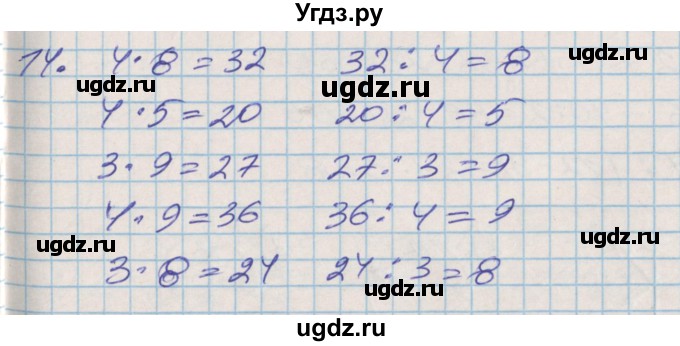 Угдз.ру
14. 4·8=32 32:4=8
ugdz.ru ugdz.ru ugdz.ru
4·5=20 20:4=5
3·9=27 27:3=9
4·9=36 36:4=9
ugdz.ru ugdz.ru
3·8=24 24:3=8
ugdz.ru
ugdz.ru